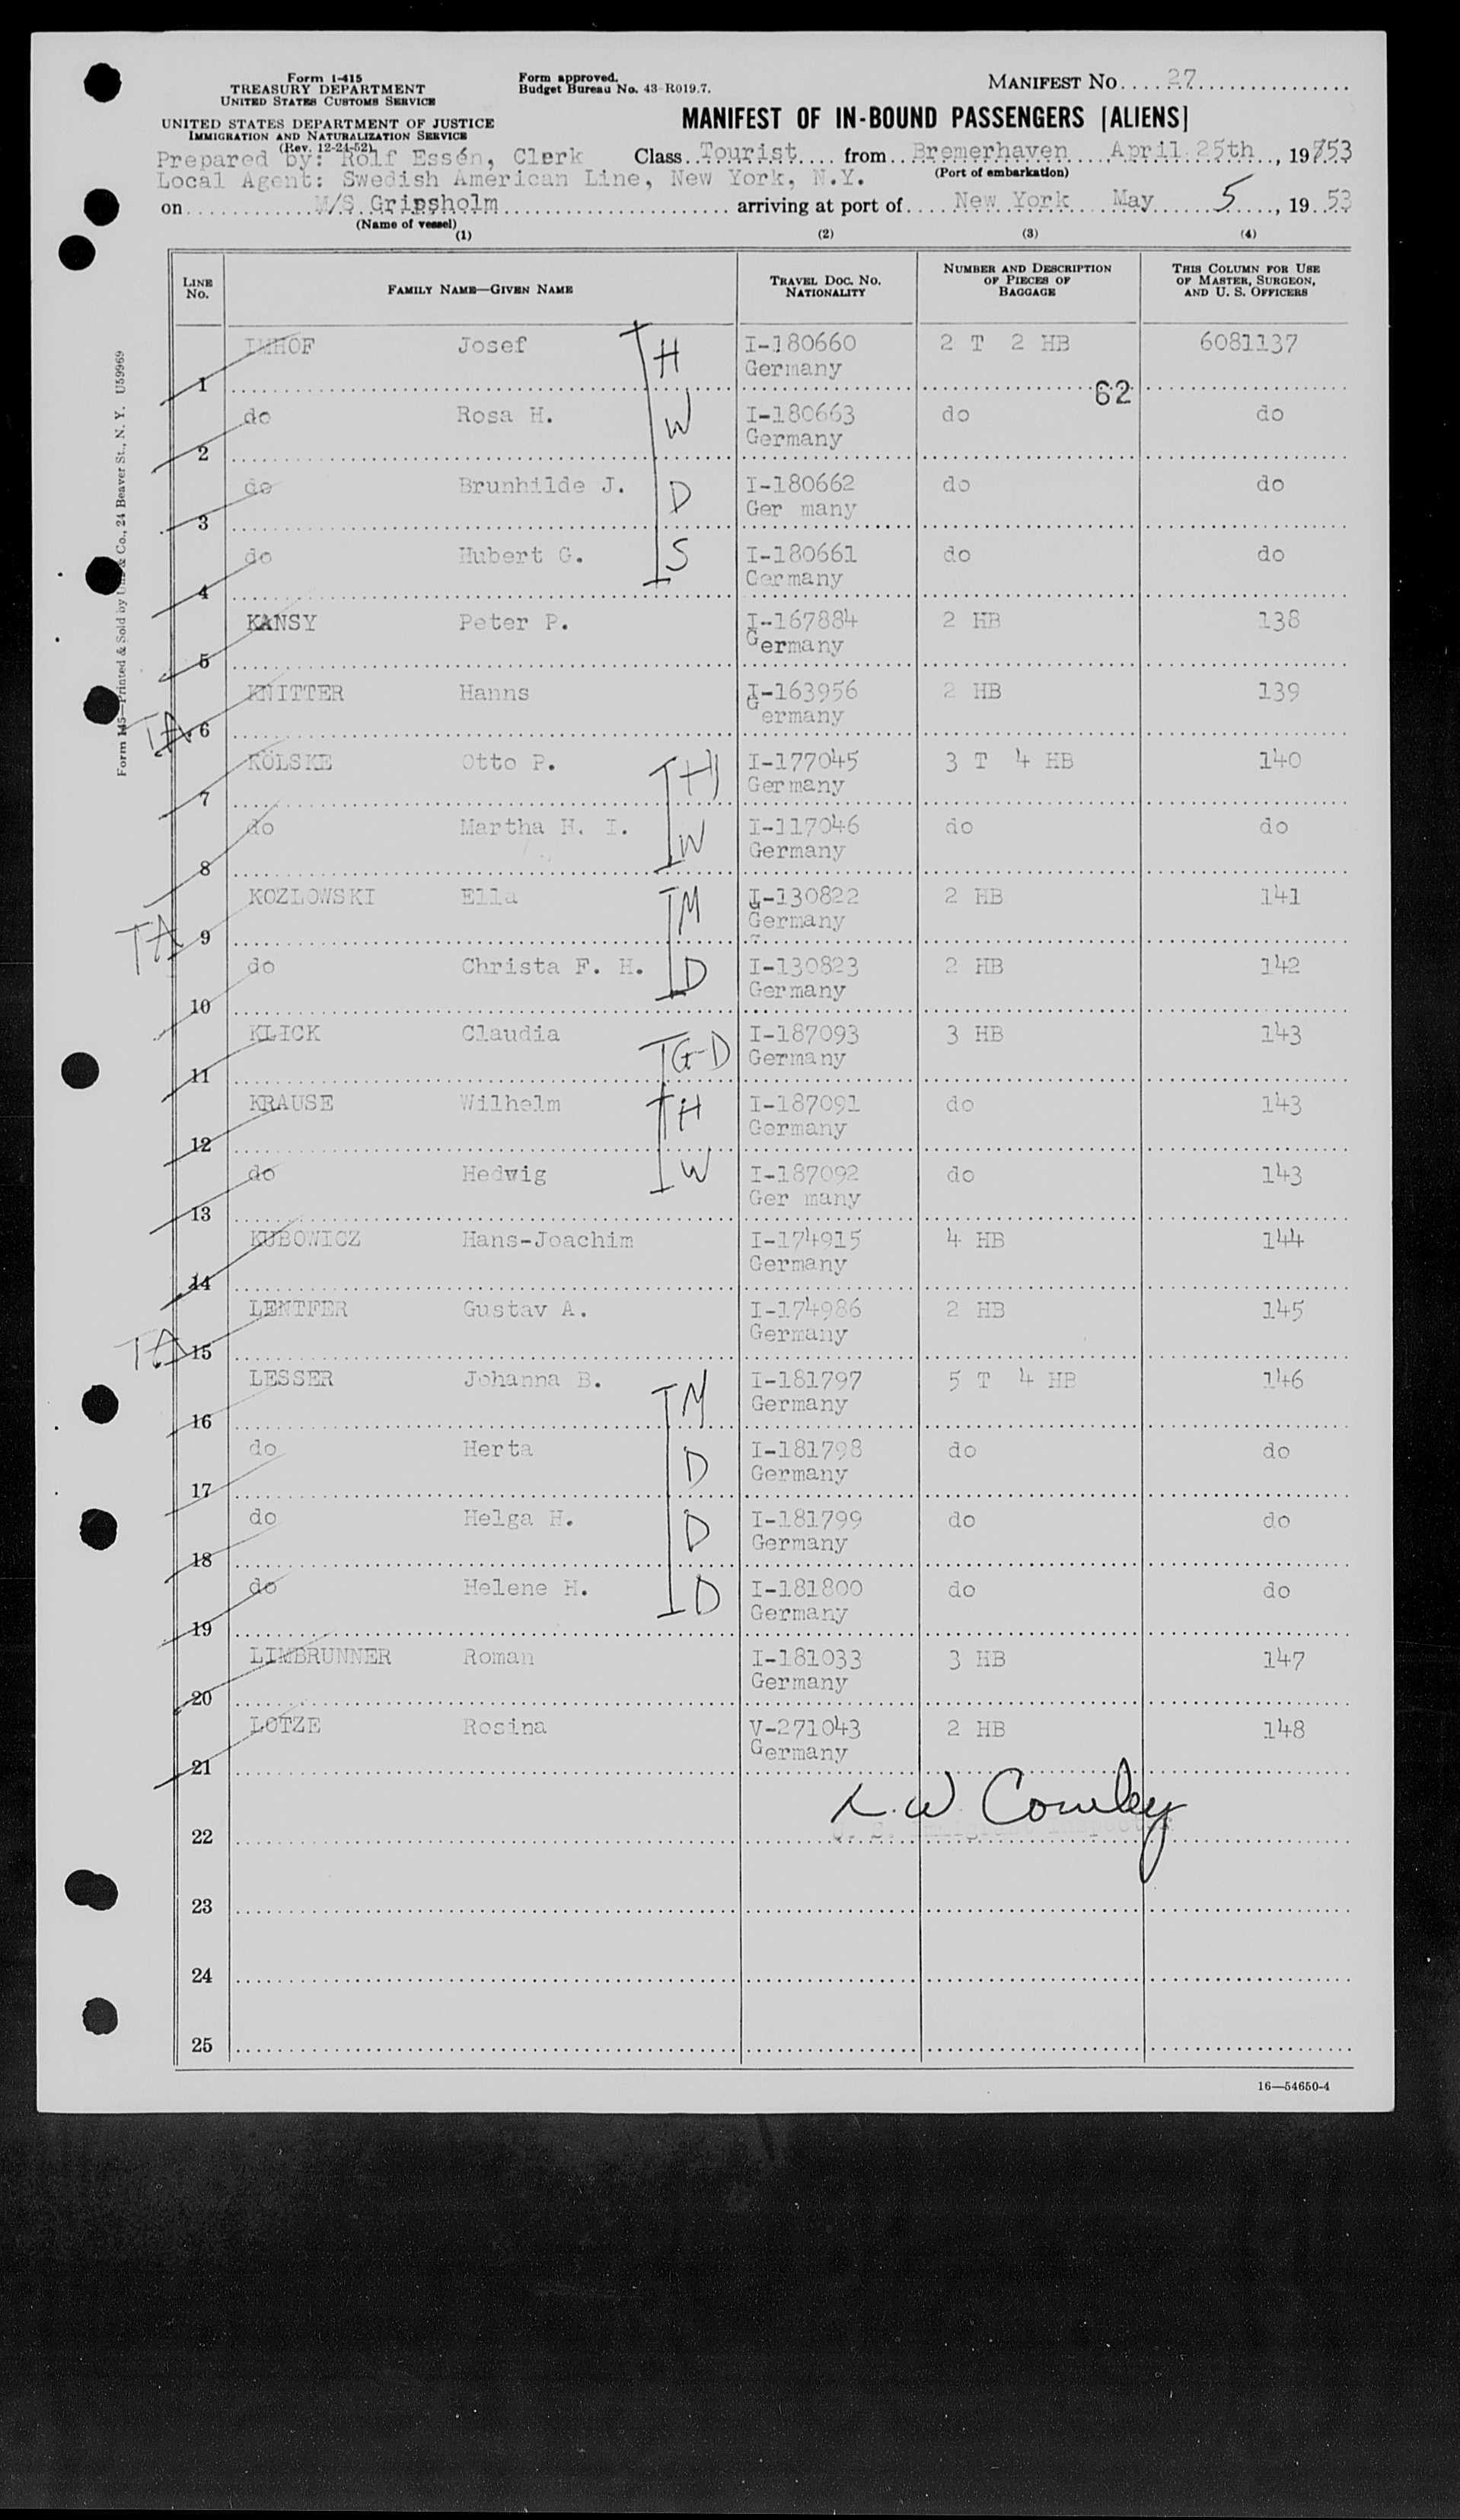 Form I-415
TREASURY DEPARTMENT
UNITED STATES CUSTOMS SERVICE
UNITED STATES DEPARTMENT OF JUSTICE
IMMIGRATION AND NATURALIZATION SERVICE
(Rev. 12-24-52)
Form approved.
Budget Bureau No. 43-R019.7.
MANIFEST NO. 27
MANIFEST OF IN-BOUND PASSENGERS [ALIENS]
Prepared by: Rolf Essén, Clerk Class Tourist from Bremerhaven April 25th, 1953
Local Agent: Swedish American Line, New York, N.Y. (Port of embarkation)
on M/S Gripsholm arriving at port of New York May 5, 1953
(Name of vessel)
(1) (2) (3) (4)
LINE No. FAMILY NAME—GIVEN NAME TRAVEL DOC. NO. NATIONALITY NUMBER AND DESCRIPTION OF PIECES OF BAGGAGE THIS COLUMN FOR USE OF MASTER, SURGEON, AND U. S. OFFICERS
1 IMHOF Josef H I-180660 2 T 2 HB 6081137
Germany
62
2 do Rosa H. W I-180663 do do
Germany
3 do Brunhilde J. D I-180662 do do
Ger many
4 do Hubert G. S I-180661 do do
Germany
5 KANSY Peter P. I-167884 2 HB 138
Germany
TA 6 KNITTER Hanns I-163956 2 HB 139
Germany
7 KOLSKE Otto P. H I-177045 3 T 4 HB 140
Germany
8 do Martha H. I. W I-117046 do do
Germany
TA 9 KOZLOWSKI Ella M I-130822 2 HB 141
Germany
10 do Christa F. H. D I-130823 2 HB 142
Germany
11 KLICK Claudia G-D I-187093 3 HB 143
Germany
12 KRAUSE Wilhelm H I-187091 do 143
Germany
13 do Hedwig W I-187092 do 143
Ger many
14 KUBOWICZ Hans-Joachim I-174915 4 HB 144
Germany
TA 15 LENTFER Gustav A. I-174986 2 HB 145
Germany
16 LESSER Johanna B. M I-181797 5 T 4 HB 146
Germany
17 do Herta D I-181798 do do
Germany
18 do Helga H. D I-181799 do do
Germany
19 do Helene H. D I-181800 do do
Germany
20 LIMBRUNNER Roman I-181033 3 HB 147
Germany
21 LOTZE Rosina V-271043 2 HB 148
Germany
L. W. Cowley
22
23
24
25
16—54650-4
Printed & Sold by & Co., 24 Beaver St., N. Y. U59969